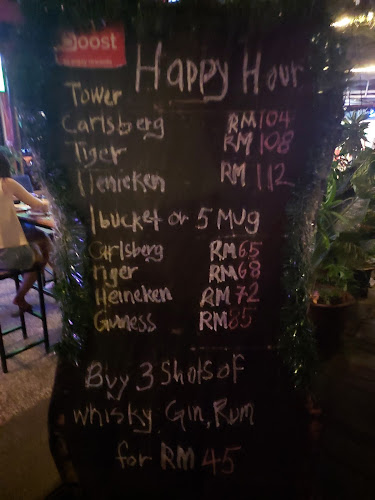 Boost
Happy Hour
Tower
Carlsberg RM104
Tiger RM 108
Henieken RM 112
1 bucket or 5 MUG
Carlsberg RM65
Tiger RM68
Heineken RM 72
Guness RM85
Buy 3 Shots of
whisky Gin, Rum
for RM 45